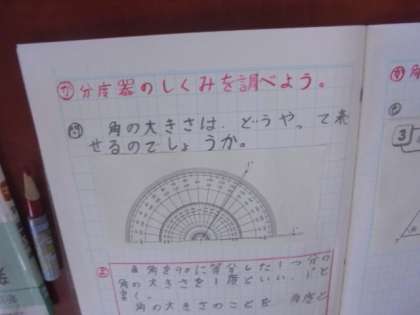 め 分度器のしくみを調べよう。
問 角の大きさは、どうやって表
せるのでしょうか。
ま 直角を90に等分した1つ分の
角の大きさを1度といい、1°と
書く。
角の大きさのことを 角度と
3